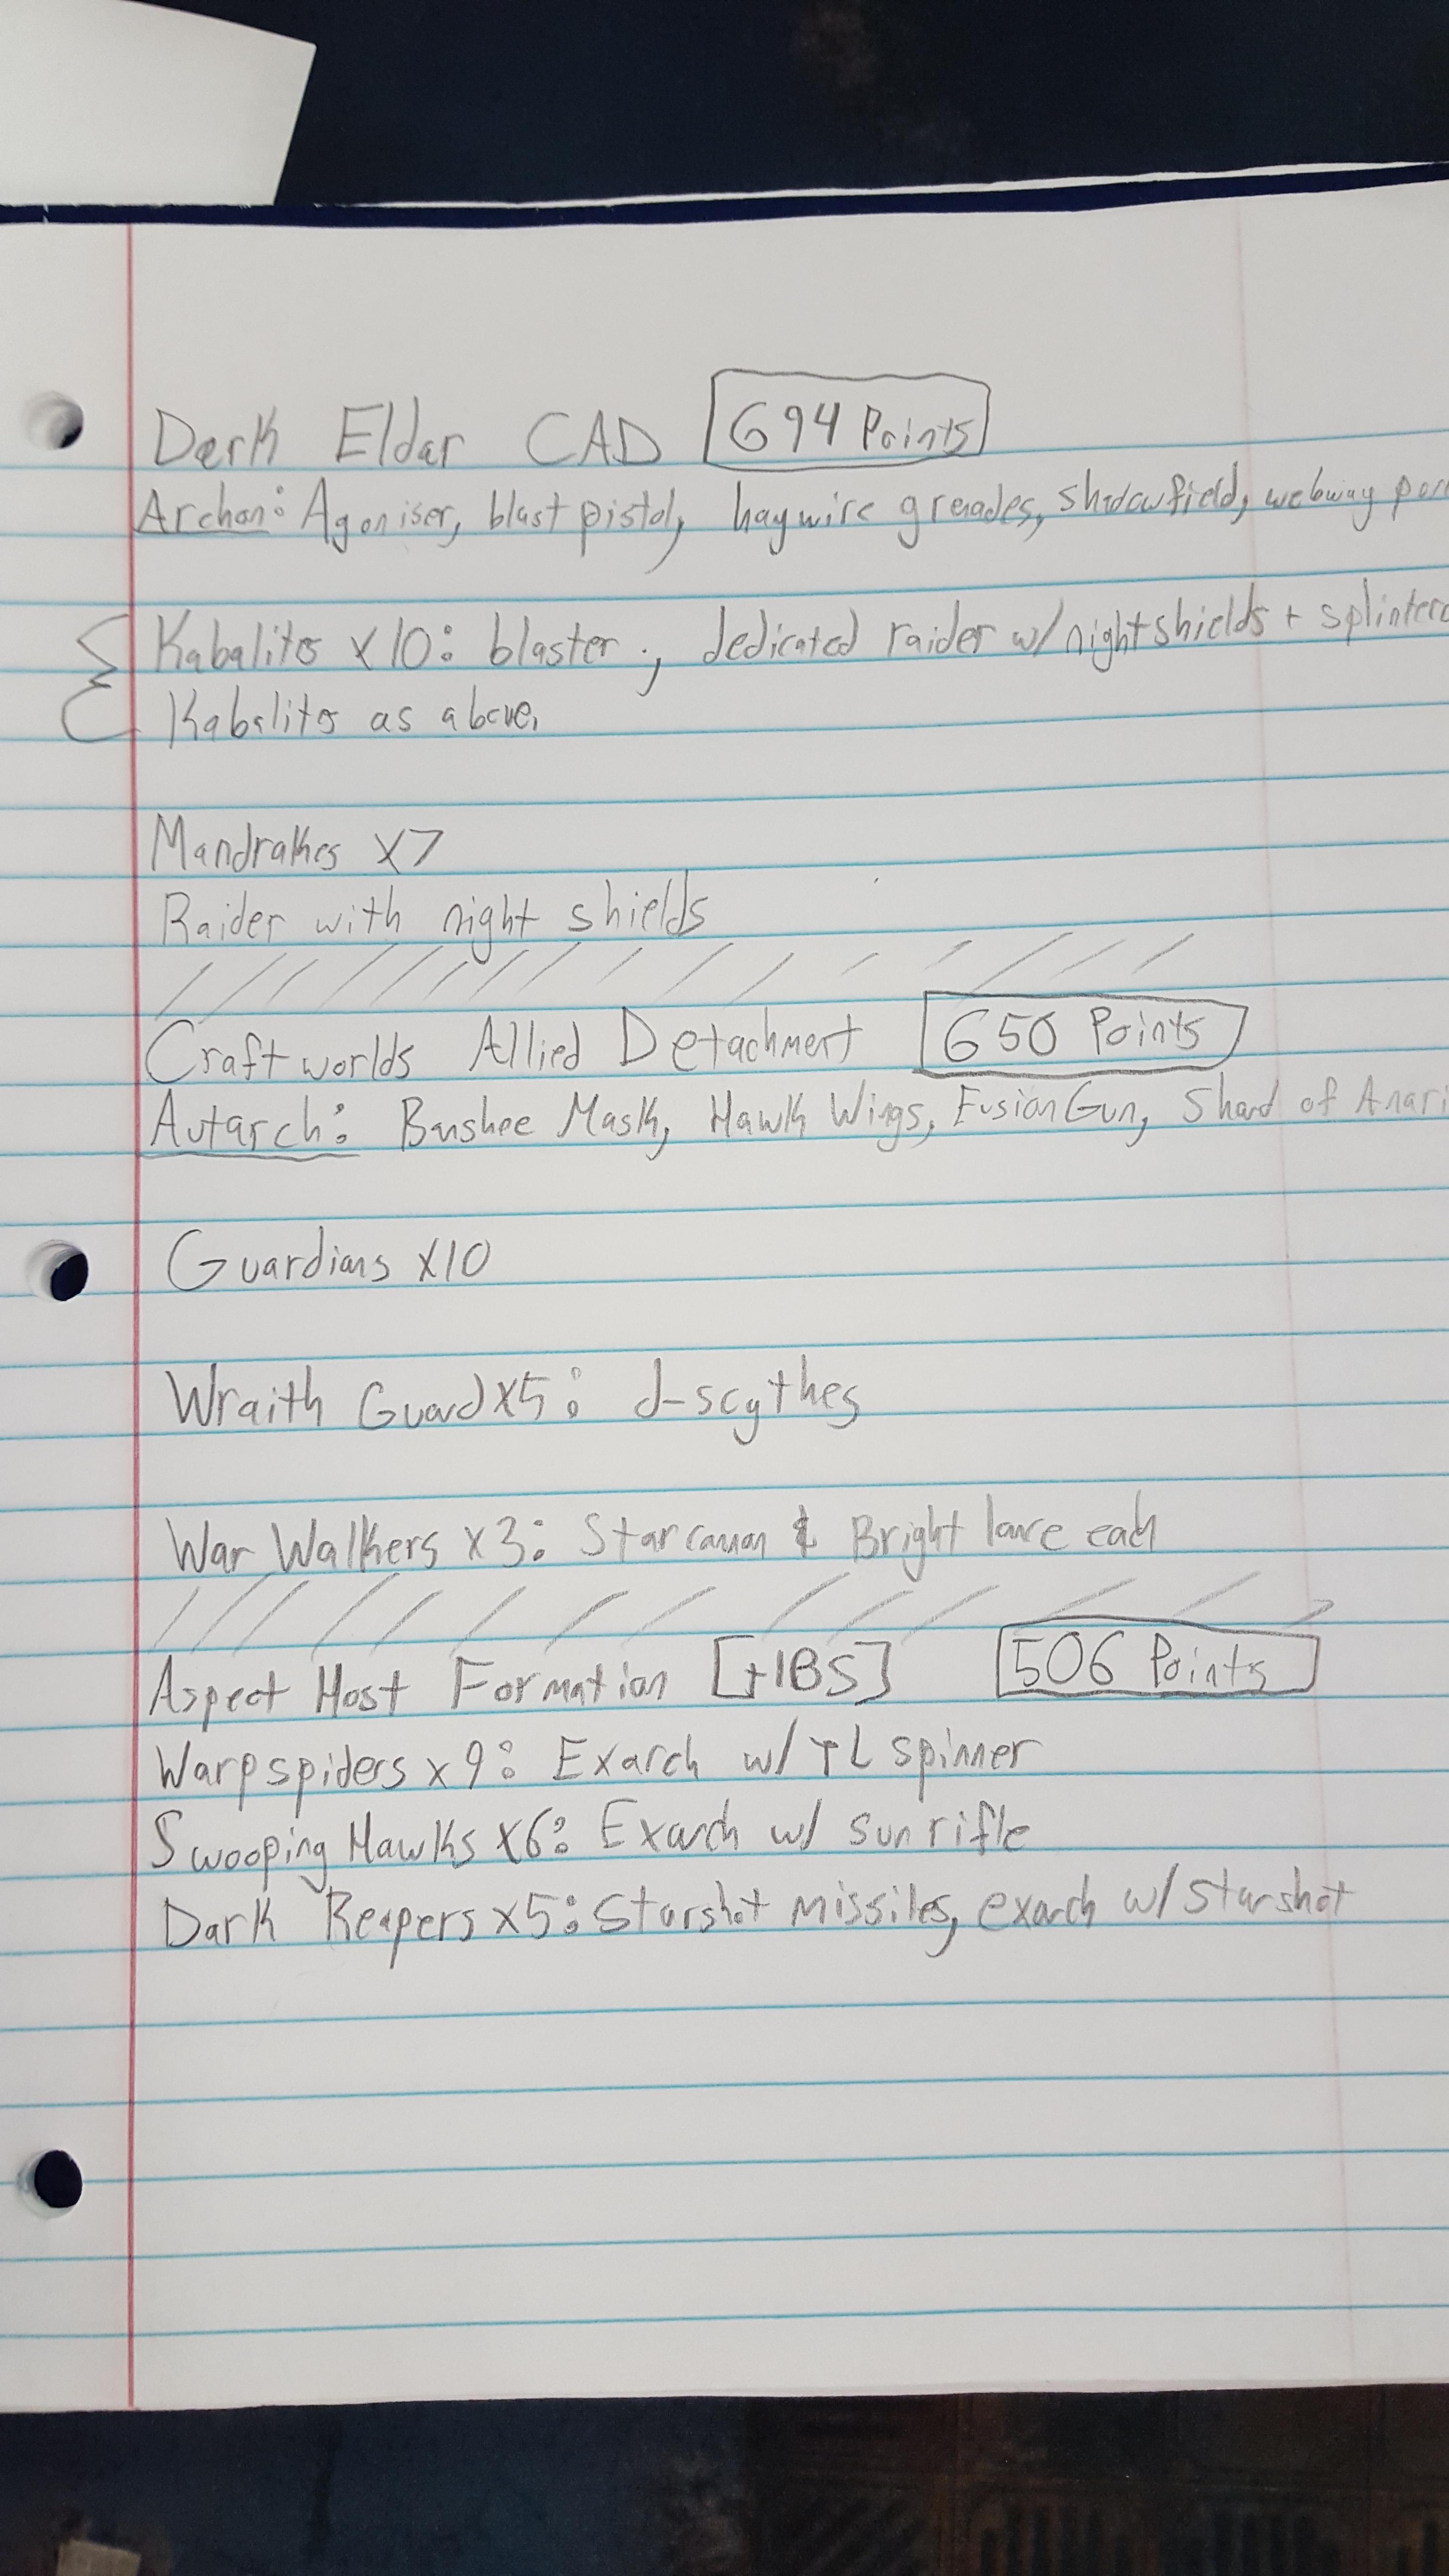 Dark Eldar CAD 694 Points
Archon: Agoniser, blast pistol, haywire greades, shadowfield, webway por
Kabalites x10: blaster; dedicated raider w/ nightshields + splinterc
Kabalites as above.
Mandrakes x7
Raider with night shields
Craftworlds Allied Detachment 650 Points
Autarch: Banshee Mask, Hawk Wings, Fusion Gun, Shard of Anari
Guardians x10
Wraith Guard x5: d-scythes
War Walkers x3: Starcannon & Bright lance each
Aspect Host Formation [+1BS] 506 Points
Warpspiders x9: Exarch w/ TL spinner
Swooping Hawks x6: Exarch w/ sunrifle
Dark Reapers x5: Starshot missiles, exarch w/ starshot